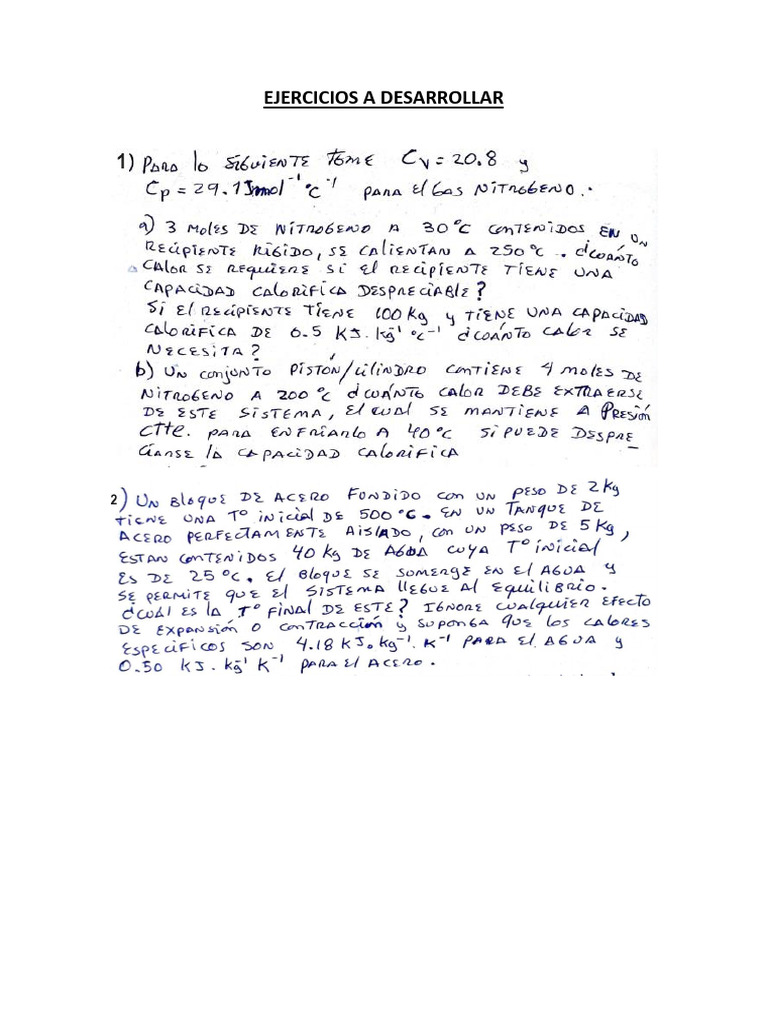 EJERCICIOS A DESARROLLAR
1) PARA lo SIGUIENTE TOME Cv = 20.8 y
Cp = 29.1 J mol⁻¹ °C⁻¹ PARA El GAS NITROGENO.
a) 3 MOLES DE NITROGENO A 30°C CONTENIDOS EN UN
RECIPIENTE RIGIDO, SE CALIENTAN A 250°C. ¿CUÁNTO
CALOR SE REQUIERE SI El RECIPIENTE TIENE UNA
CAPACIDAD CALORIFICA DESPRECIABLE?
SI El RECIPIENTE TIENE 100 Kg y TIENE UNA CAPACIDAD
CALORIFICA DE 0.5 KJ. Kg⁻¹ °C⁻¹ ¿CUÁNTO CALOR SE
NECESITA?
b) UN CONJUNTO PISTÓN/CILINDRO CONTIENE 4 MOLES DE
NITROGENO A 200°C ¿CUÁNTO CALOR DEBE EXTRAERSE
DE ESTE SISTEMA, El CUAL SE MANTIENE A PRESIÓN
CTTE. PARA ENFRIARLO A 40°C SI PUEDE DESPRE
CIARSE LA CAPACIDAD CALORIFICA
2) UN BLOQUE DE ACERO FUNDIDO CON UN PESO DE 2 Kg
TIENE UNA T° INICIAL DE 500°C. EN UN TANQUE DE
ACERO PERFECTAMENTE AISLADO, CON UN PESO DE 5 Kg,
ESTAN CONTENIDOS 40 Kg DE AGUA CUYA T° INICIAL
ES DE 25°C. El BLOQUE SE SUMERGE EN El AGUA y
SE PERMITE QUE El SISTEMA LLEGUE Al EQUILIBRIO.
¿CUÁl ES LA T° FINAL DE ESTE? IGNORE CUALQUIER EFECTO
DE EXPANSIÓN O CONTRACCIÓN y SUPONGA QUE LOS CALORES
ESPECIFICOS SON 4.18 KJ. Kg⁻¹. K⁻¹ PARA El AGUA y
0.50 KJ. Kg⁻¹ K⁻¹ PARA El ACERO.